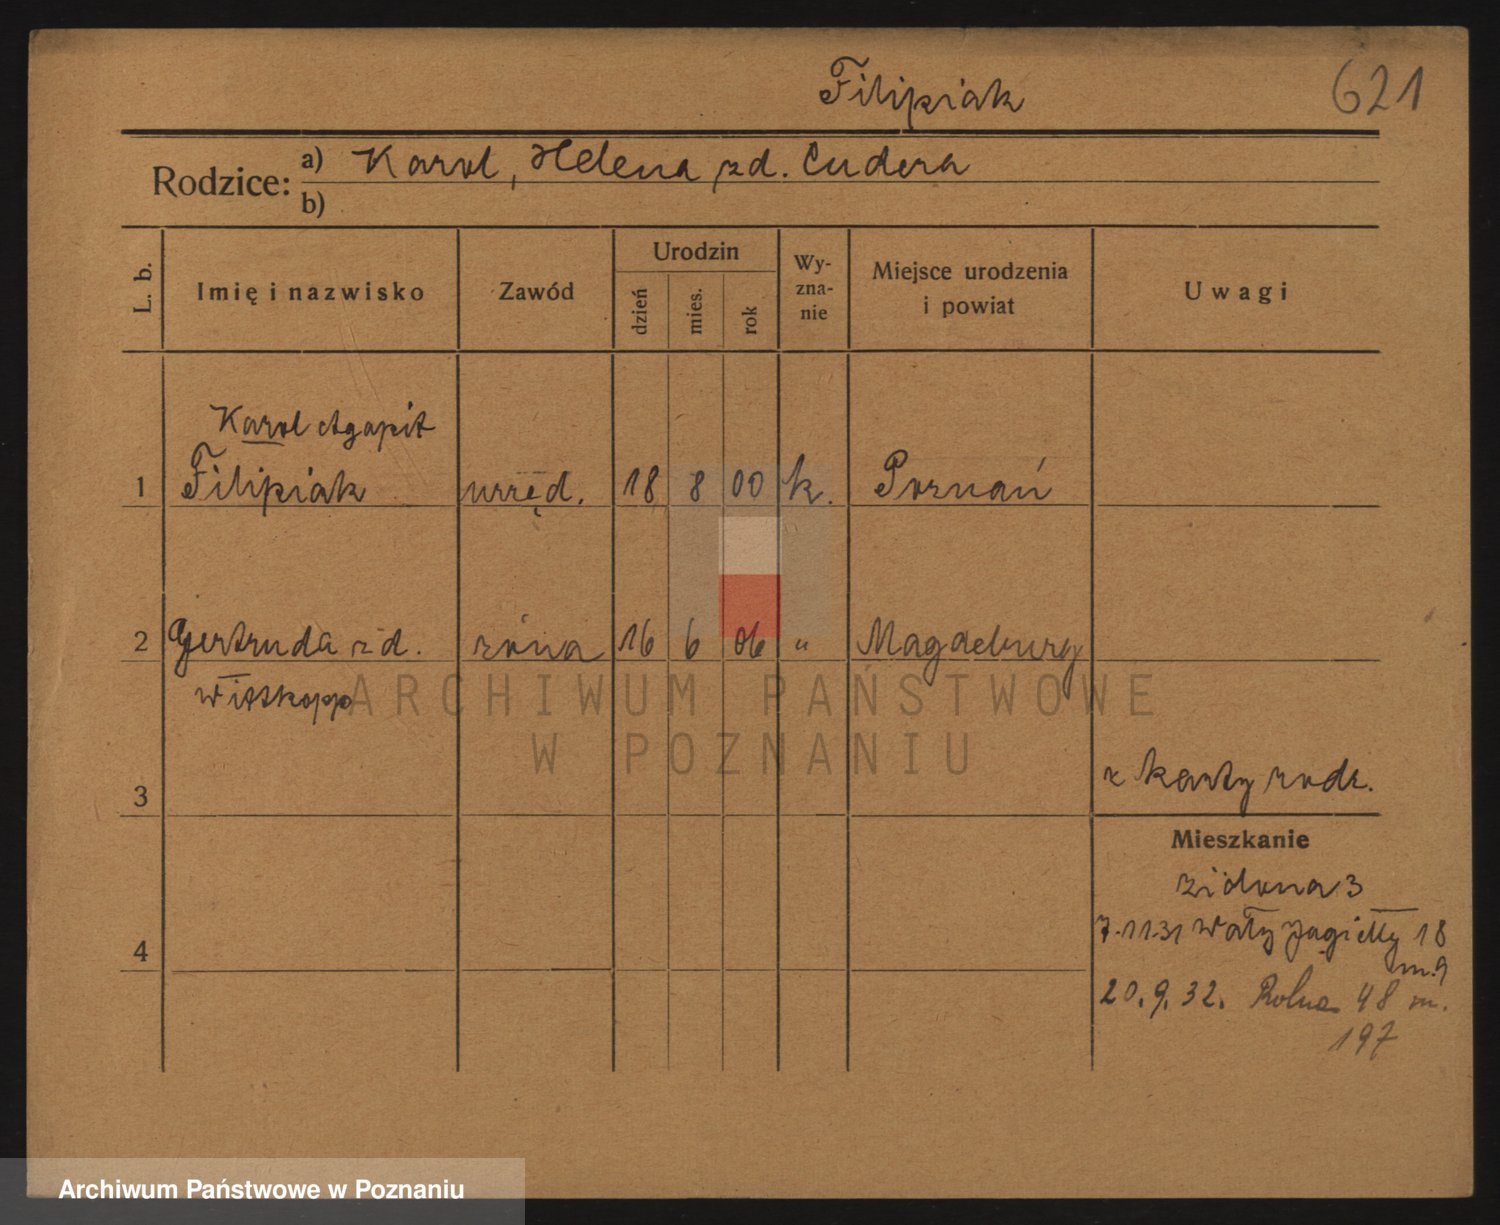 Filipiak
621
Rodzice:
a) Karol, Helena zd. Cudera
b)
L. b.
Imię i nazwisko
Zawód
Urodzin
dzień
mies.
rok
Wy-
zna-
nie
Miejsce urodzenia
i powiat
Uwagi
Karol Agapit
1 Filipiak urzęd. 18 8 00 k. Poznań
2 Gertruda zd. żona 16 6 06 " Magdeburg
Wittkopp
ARCHIWUM PAŃSTWOWE
W POZNANIU
z karty rodz.
3
Mieszkanie
3
7.11.31 Wały Jagiełły 18
m.9
4
20.9.32. Rolna 48 m.
197
Archiwum Państwowe w Poznaniu